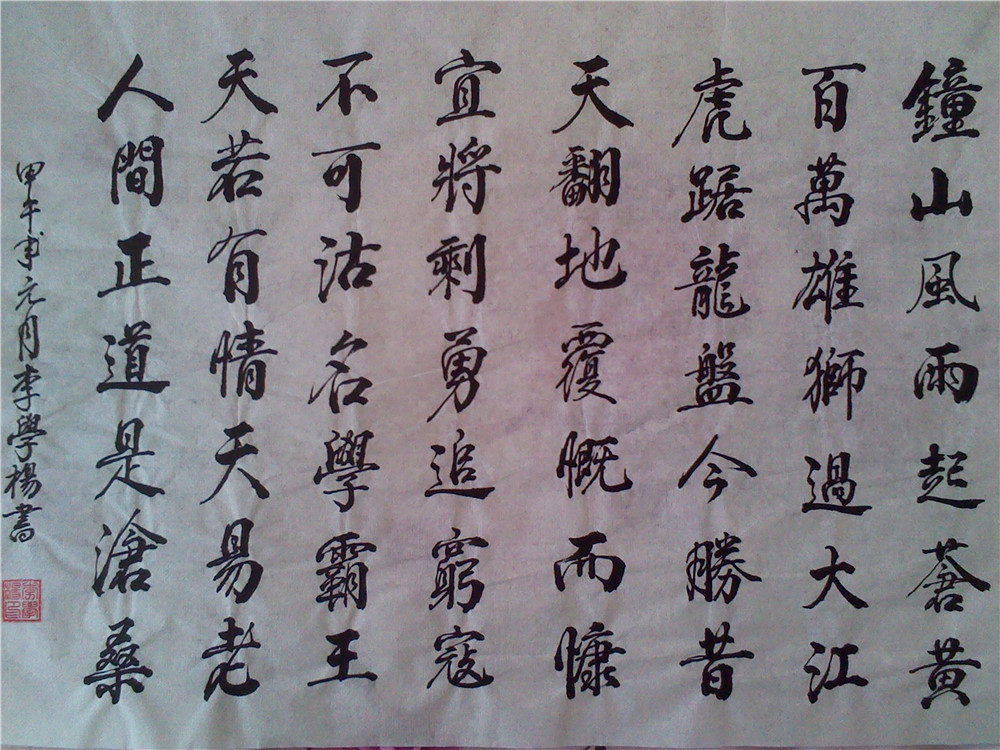 鐘山風雨起蒼黃
百萬雄獅過大江
虎踞龍盤今勝昔
天翻地覆慨而慷
宜將剩勇追窮寇
不可沽名學霸王
天若有情天易老
人間正道是滄桑
甲午年元月李學楊書